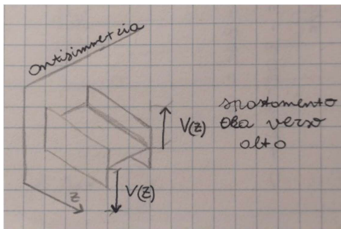 antisimmetria
V(z)
spostamento
verso
alto
V(z)
z